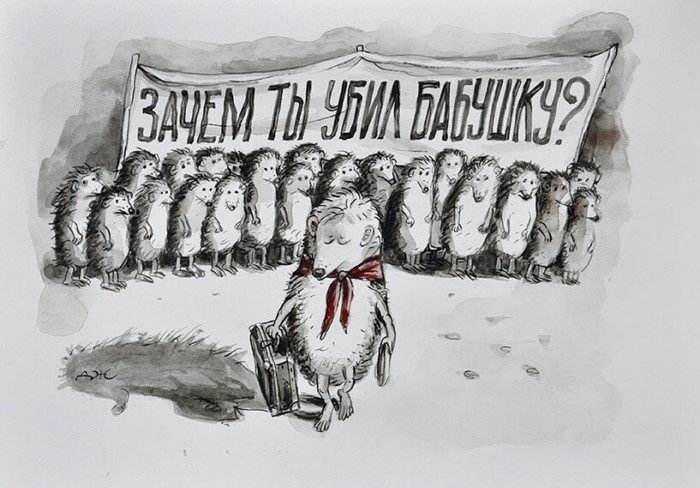 ЗАЧЕМ ТЫ УБИЛ БАБУШКУ?
АДЖ